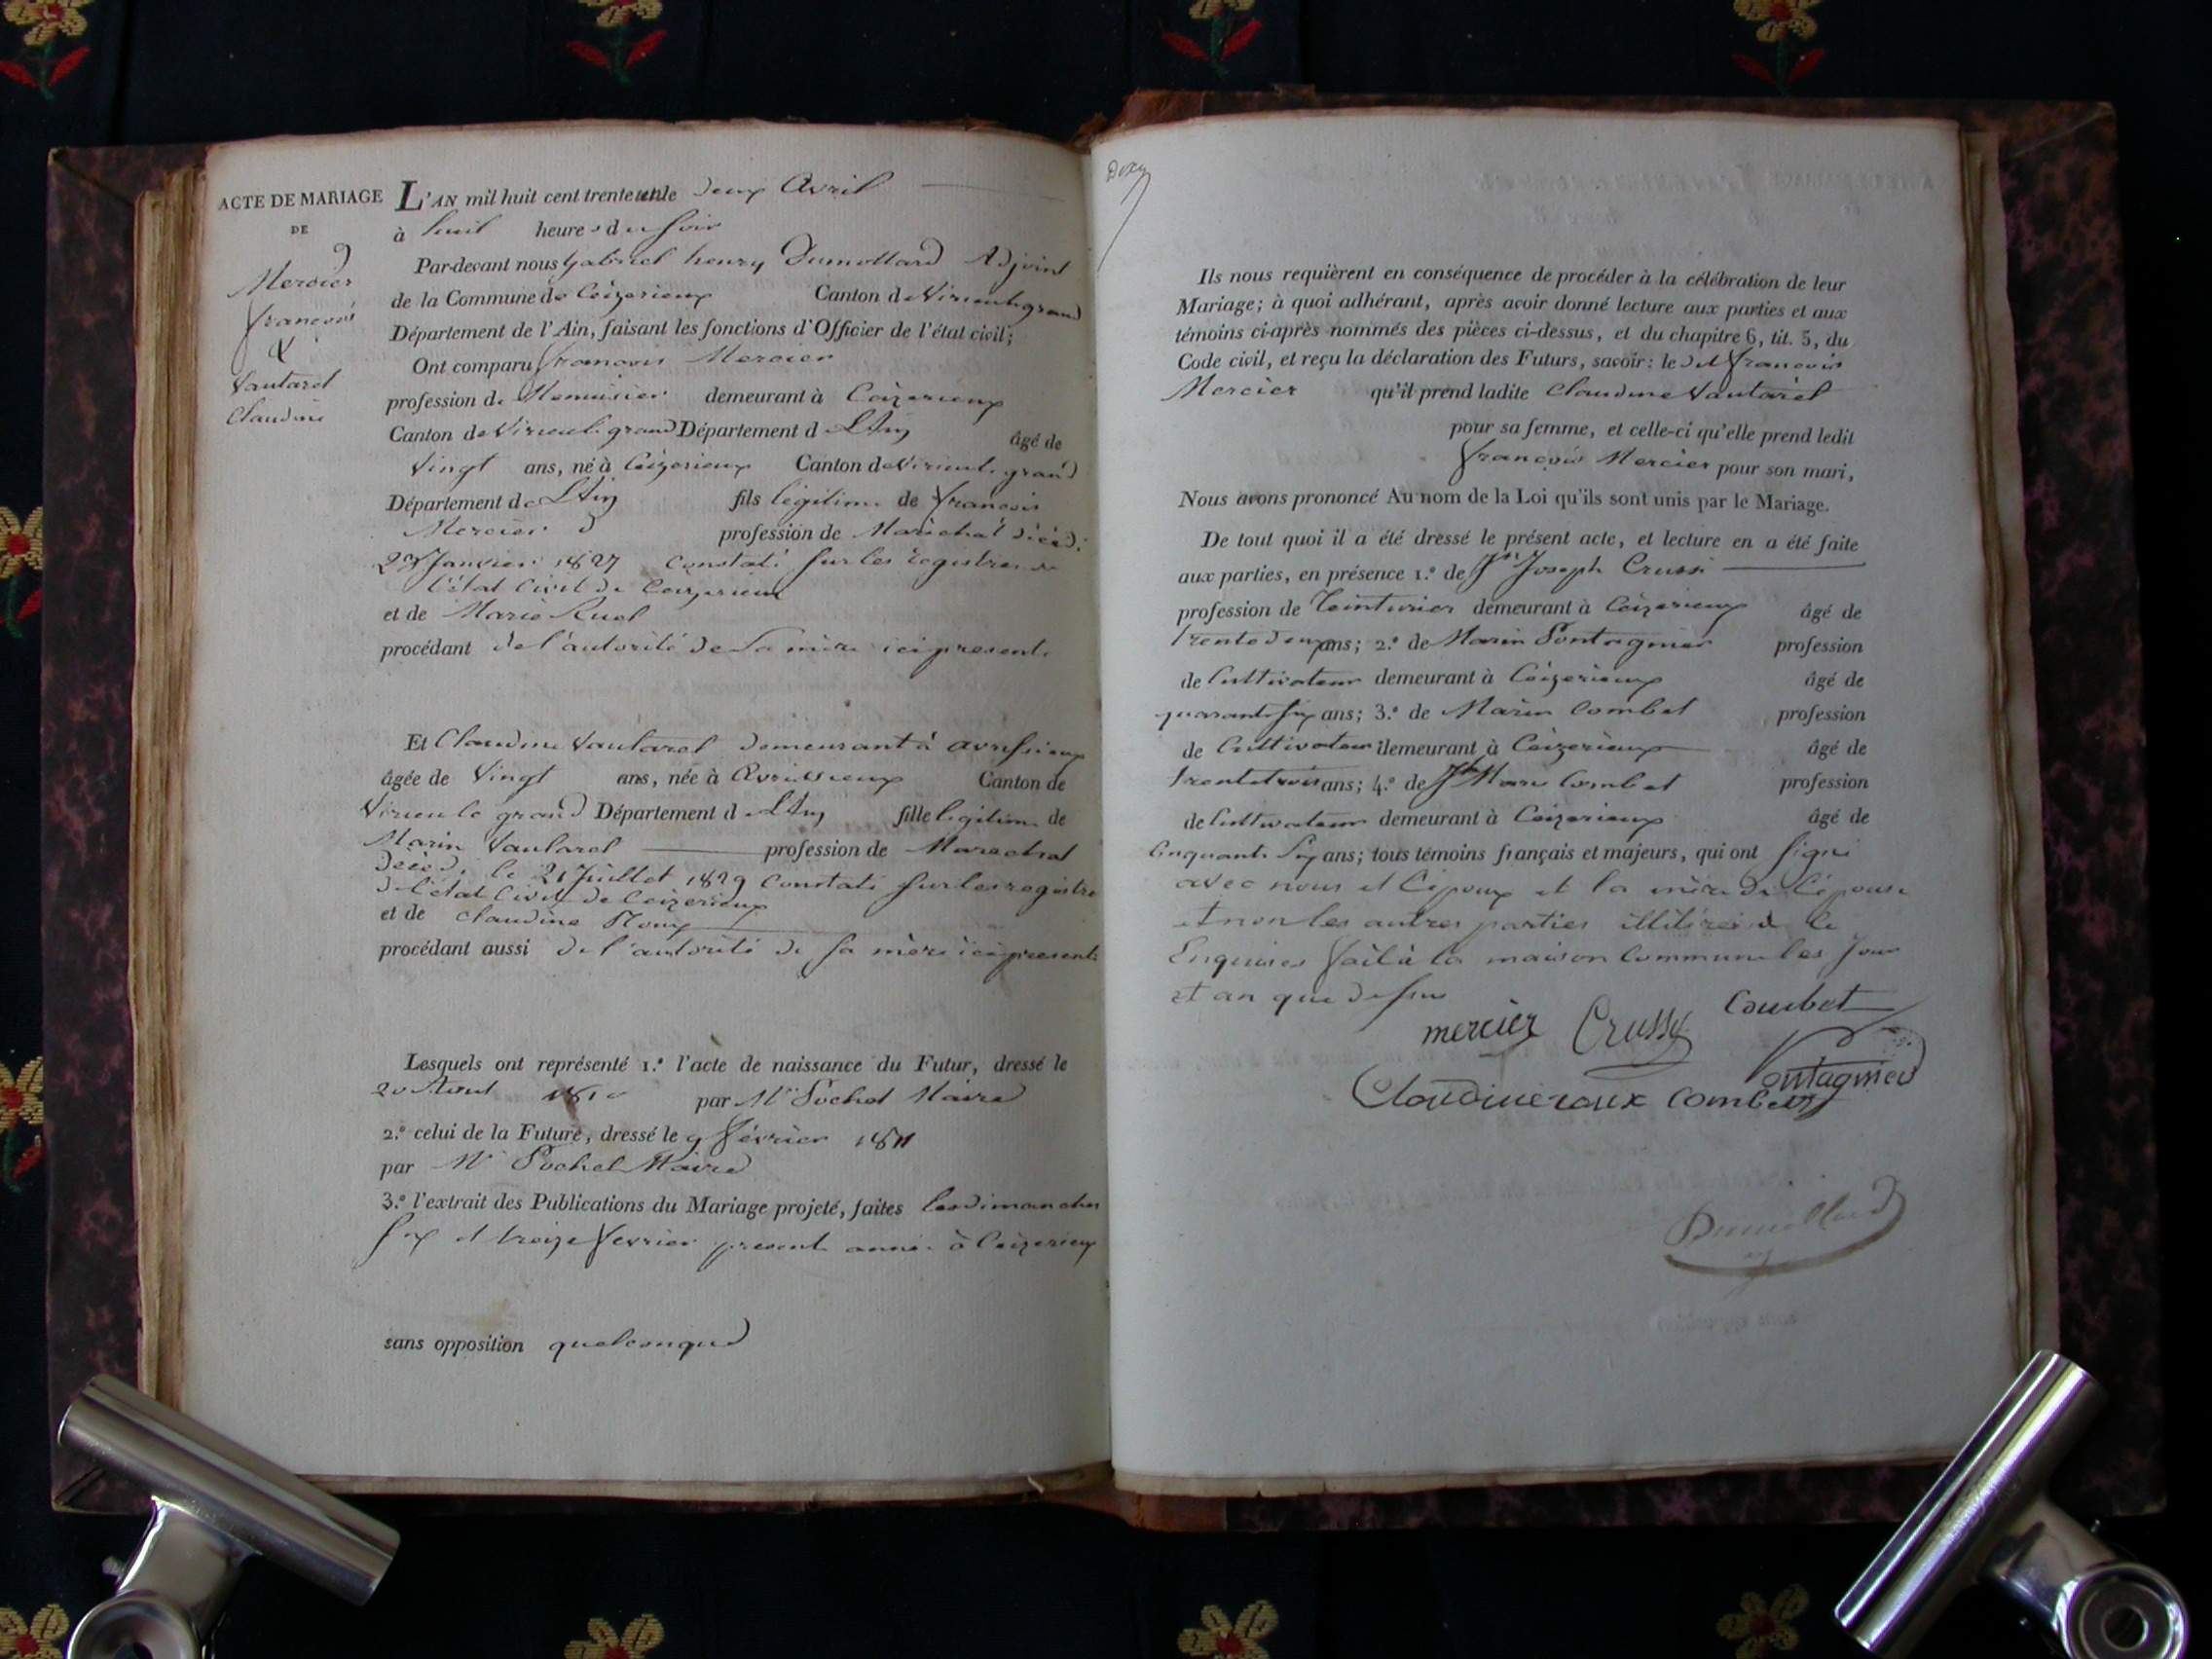 ACTE DE MARIAGE
DE
9
Mercier
françois
&
Vautaret
Claudine
L'AN mil huit cent trente un le deux Avril
à huit heures du soir
Par-devant nous Gabriel henry Dumollard Adjoint
de la Commune de Ceizerieux Canton de Virieu le grand
Département de l'Ain, faisant les fonctions d'Officier de l'état civil;
Ont comparu françois Mercier
profession de Menuisier demeurant à Ceizerieux
Canton de Virieu le grand Département de L'Ain âgé de
Vingt ans, né à Ceizerieux Canton de Virieu le grand
Département de L'Ain fils légitime de françois
Mercier profession de Maréchal décédé
Janvier 1827 constaté sur les registres de
l'état Civil de Ceizerieux
et de Marie Ruel
procédant de l'autorité de sa mère ici présente
Et Claudine Vautaret demeurant à avrissieux
âgée de Vingt ans, née à Avrissieux Canton de
Virieu le grand Département de L'Ain fille légitime de
Marin Vautaret profession de Marechal
décédé le 21 Juillet 1829 Constaté sur les registre
de l'état Civil de Ceizerieux
et de Claudine Roux
procédant aussi de l'autorité de sa mère ici présente
Lesquels ont représenté 1.º l'acte de naissance du Futur, dressé le
20 Aout 1810 par Mr Pochet Maire
2.º celui de la Future, dressé le 9 février 1811
par Mr Pochet Maire
3.º l'extrait des Publications du Mariage projeté, faites les dimanches
six et treize fevrier presente année à Ceizerieux
sans opposition quelconque
Ils nous requièrent en conséquence de procéder à la célébration de leur
Mariage; à quoi adhérant, après avoir donné lecture aux parties et aux
témoins ci-après nommés des pièces ci-dessus, et du chapitre 6, tit. 5, du
Code civil, et reçu la déclaration des Futurs, savoir: le dit françois
Mercier qu'il prend ladite Claudine Vautaret
pour sa femme, et celle-ci qu'elle prend ledit
françois Mercier pour son mari,
Nous avons prononcé Au nom de la Loi qu'ils sont unis par le Mariage.
De tout quoi il a été dressé le présent acte, et lecture en a été faite
aux parties, en présence 1.º de Joseph Crussi
profession de Teinturier demeurant à Ceizerieux âgé de
trente deux ans; 2.º de Marin Pontagnier profession
de Cultivateur demeurant à Ceizerieux âgé de
quarante six ans; 3.º de Marin Combet profession
de Cultivateur demeurant à Ceizerieux âgé de
trente trois ans; 4.º de Combet profession
de Cultivateur demeurant à Ceizerieux âgé de
Cinquante six ans; tous témoins français et majeurs, qui ont signé
avec nous et l'époux et la mère de l'épouse
et non les autres parties illitérées de ce
Enquises fait à la maison Commune les jour
et an que dessus
mercier Crussy Combet
Pontagnier
Claudine roux Combet
Dumollard